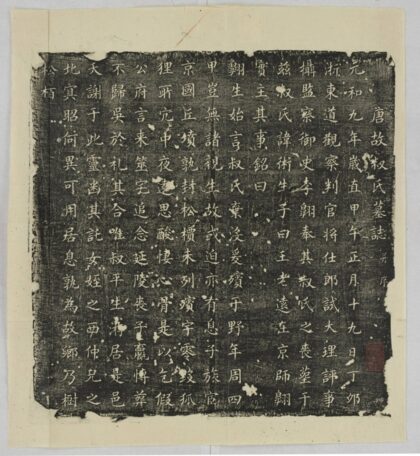 唐故叔氏墓誌
元和九年歲直甲午正月十九日丁卯
浙東道觀察判官將仕郎試大理評事
攝監察御史李翱奉其叔氏之喪葬于
茲叔氏諱術生子曰王老遠在京師翱
實主其事銘曰
翱生始言叔氏棄沒爰殯于野年周四
甲豈無諸親生故或迫亦有息子旅宦
京國丘墳孰封松檟未列殯宇零毀狐
狸所穴中夜思酸悽心骨是以乞假
公府言來筮宅追念延陵喪子嬴博葬
不歸吳於礼其合唯叔平生居是邑
天謝于此靈幽其託女姪之西仲兄之
北冥昭何異可用居息孰為故鄉乃樹
松柏